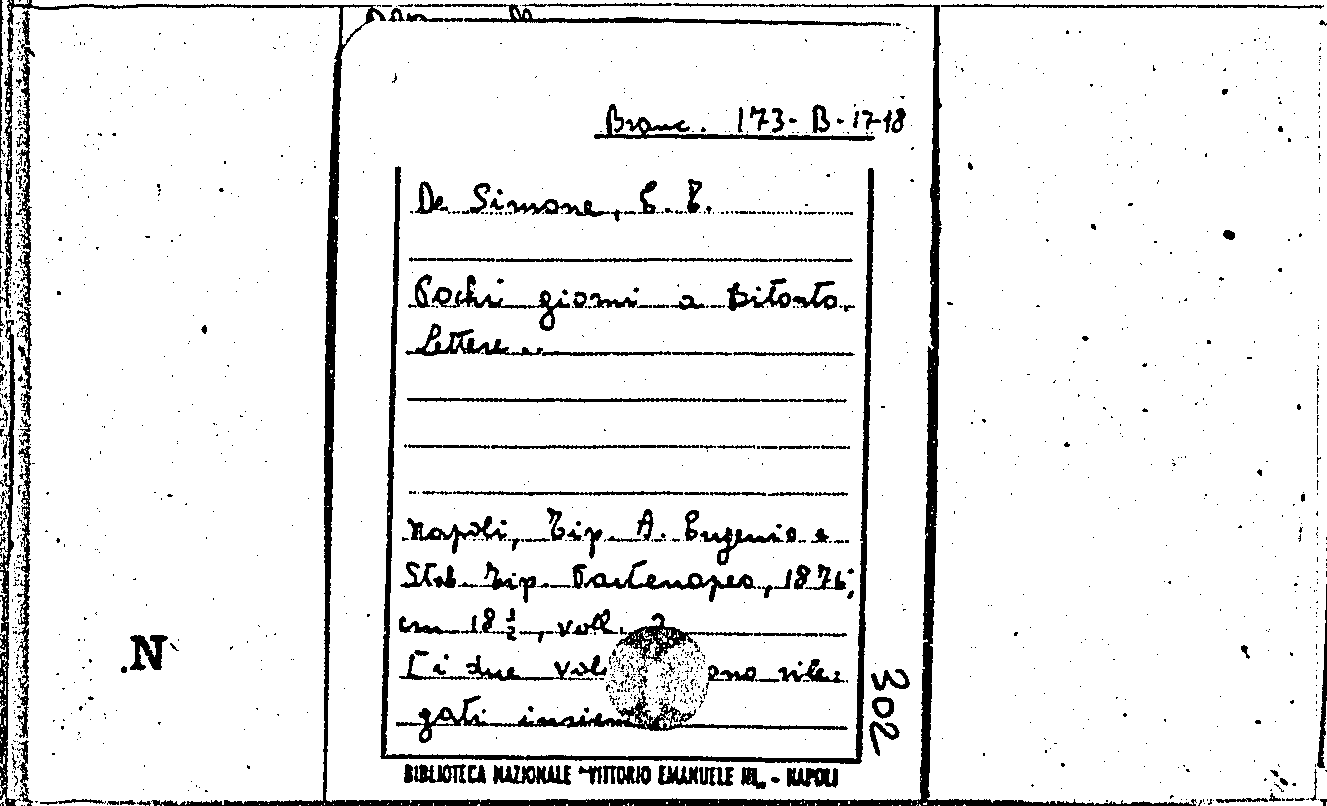 Branc. 173-B-17-18
De Simone, E. T.
Pochi giorni a Bitonto.
Lettere...
Napoli, Tip. A. Eugenio e
Stab. Tip. Partenopeo, 1876;
cm 18 ½, voll. 2
[i due vol ono rile=
gati insiem
302
N
BIBLIOTECA NAZIONALE "VITTORIO EMANUELE III„ - NAPOLI